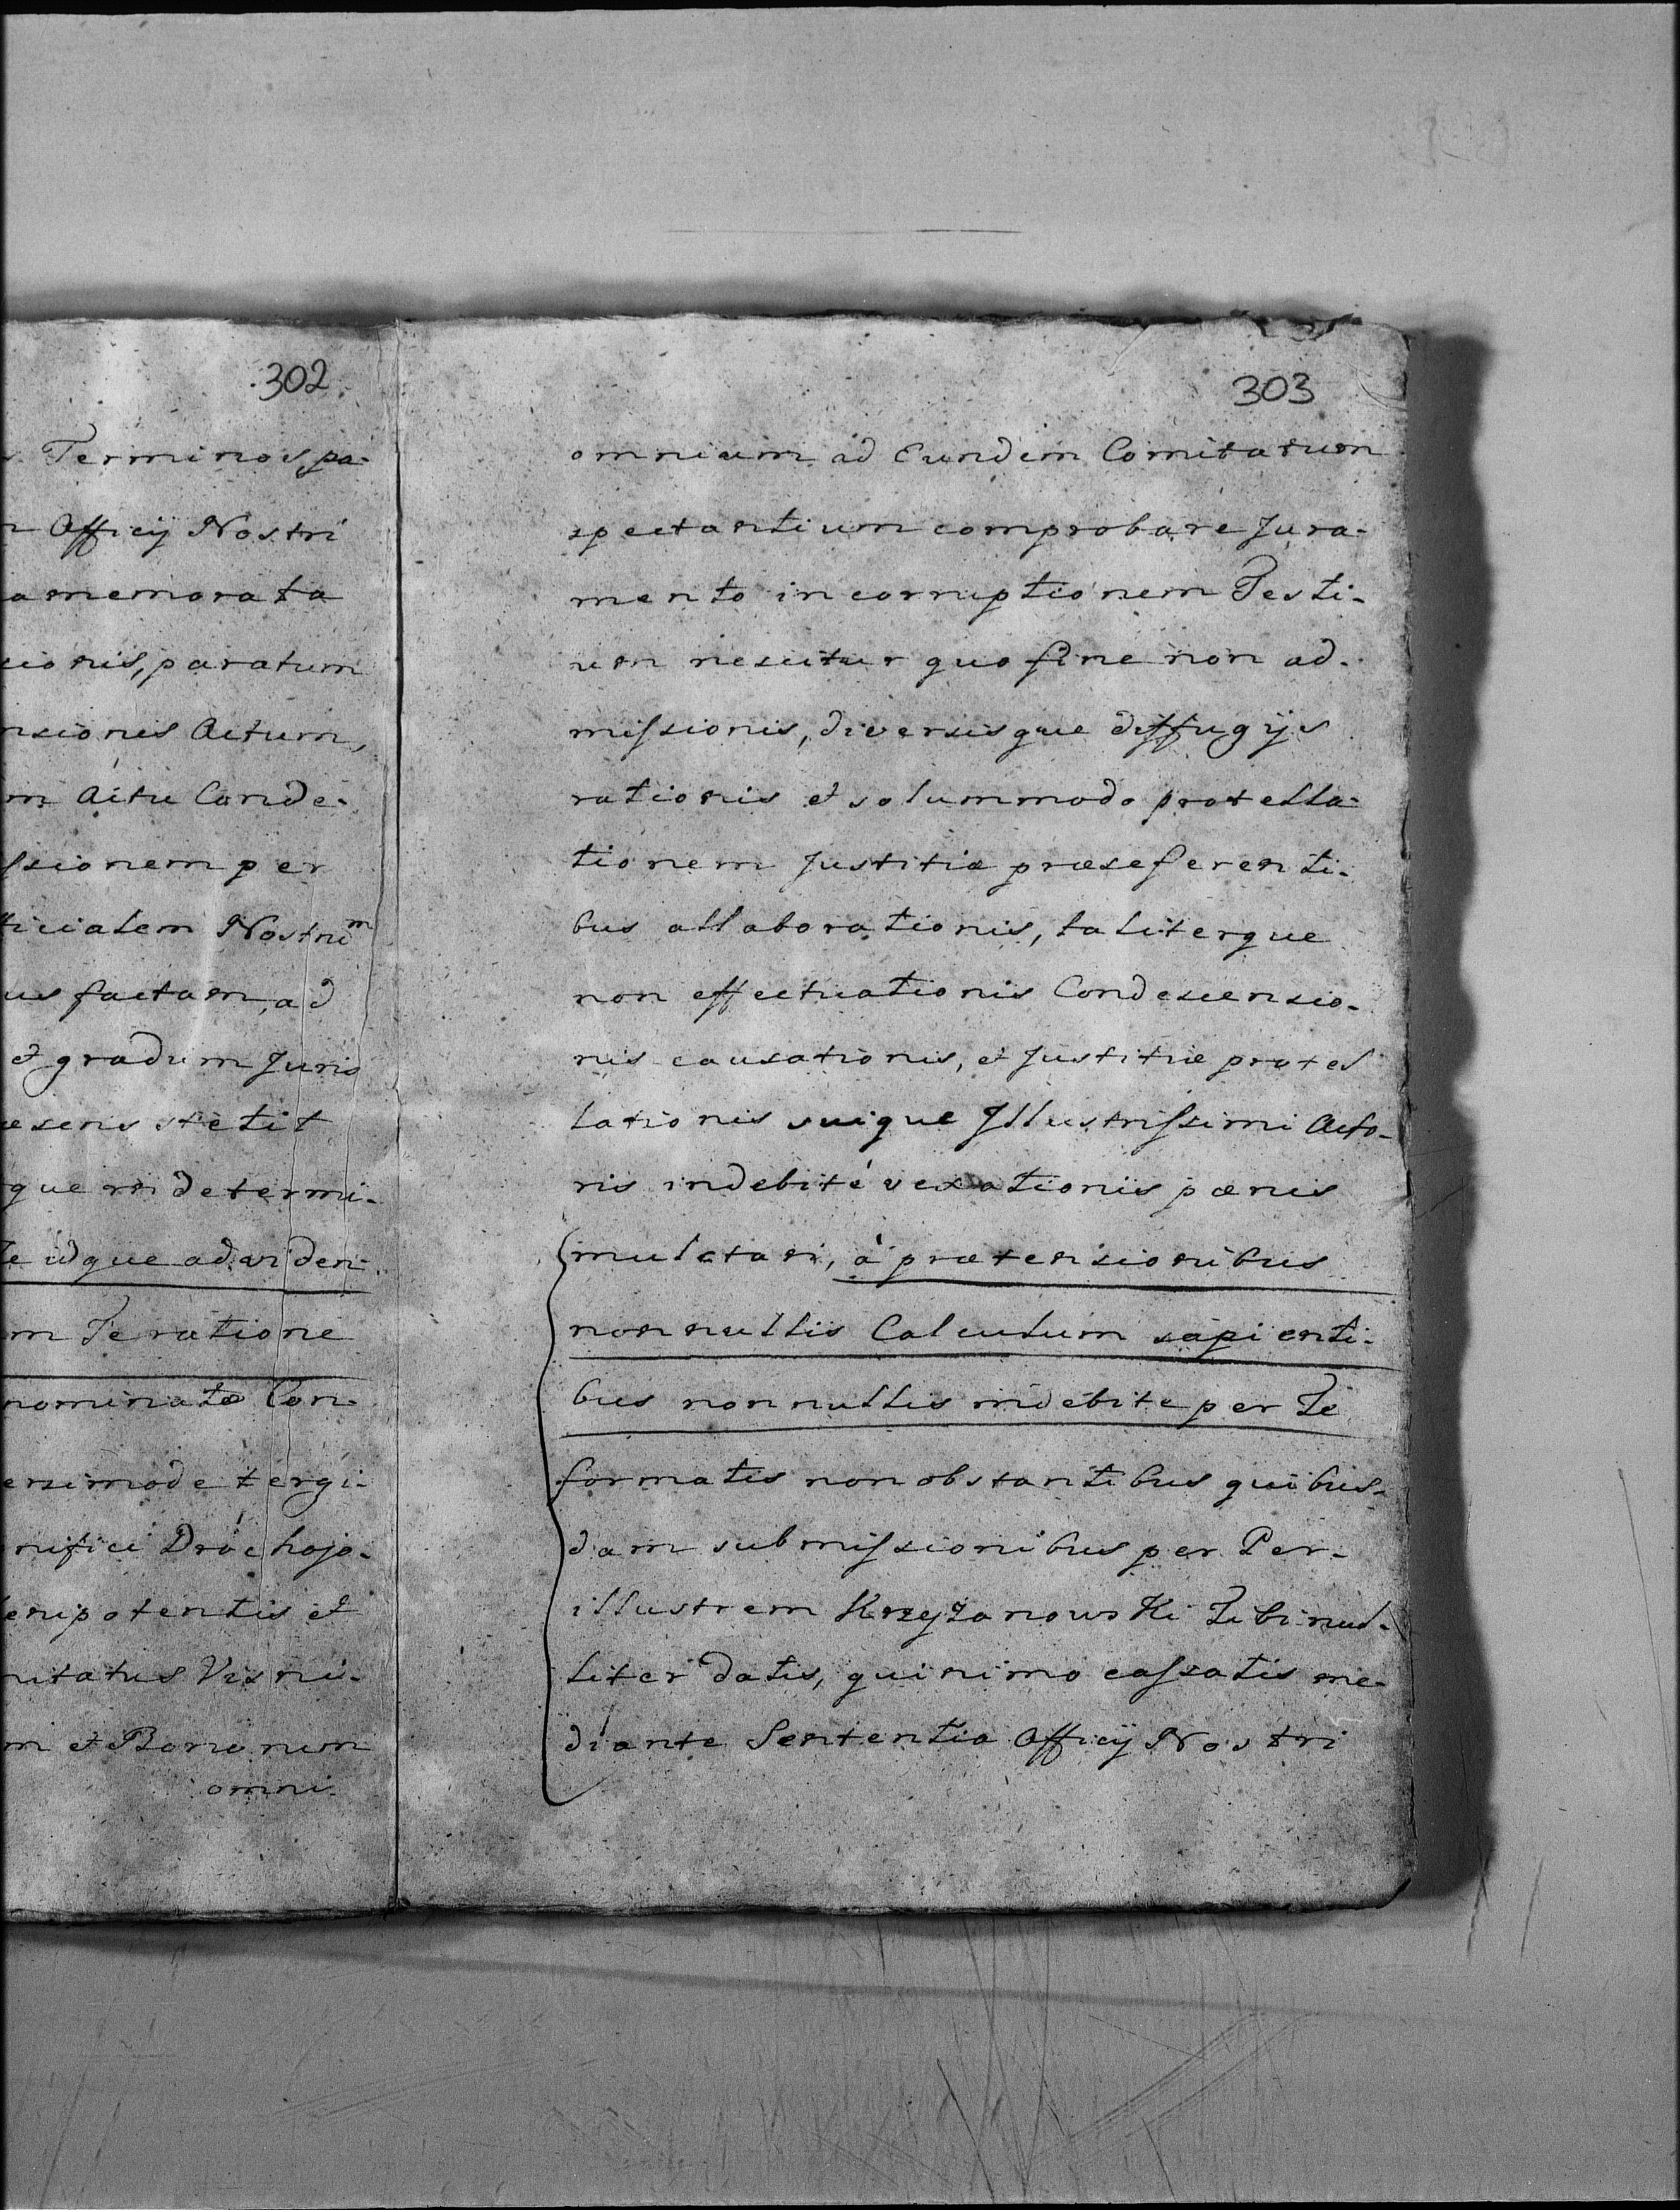 302
Terminos, pa-
Officij Nostri
memorata
sionis, paratum
nsionis Actum,
m Actu Conde-
ſsionem per
ticialem Nostru͞m
us factam, ad
et gradum Juris
esens stetit
que determi-
Te idque ad viden-
m Te ratione
nominatæ Con-
ersimode tergi-
nifici Dróchojo-
enipotentis et
mitatus Visni-
m et Bonorum
omni-
303
omnium ad Eundem Comitatum
spectantium comprobare Jura-
mento in corruptionem Testi-
um nescitur quo fine non ad-
miſsionis, diversisque diffugijs
rationis et solummodo protella-
tionem Justitiæ præseferenti-
bus allaborationis, taliterque
non effectuationis Condescensio-
nis causationis, et Justitiæ protel
lationis suique Illustriſsimi Acto-
ris indebité vexationis pænis
mulctari, à prætensionibus
nonnullis Calculum sapienti-
bus nonnullis indebite per Te
formatis non obstantibus quibus-
dam submiſsionibus per Per-
illustrem Krzyżanowski Tibi nul-
liter datis, quinimo caſsatis me-
diante Sententia Officij Nostri